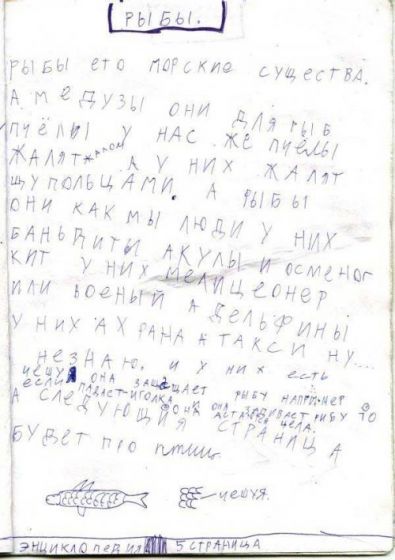 РЫБЫ.
РЫБЫ ЕТО МОРСКИЕ СУЩЕСТВА.
А МЕДУЗЫ ОНИ ДЛЯ РЫБ
ПЧЁЛЫ У НАС ЖЕ ПЧЕЛЫ
ЖАЛЯТ ЖАЛОМ А У НИХ ЖАЛЯТ
ЩУПОЛЬЦАМИ. А РЫБЫ
ОНИ КАК МЫ ЛЮДИ У НИХ
БАНЬДИТЫ АКУЛЫ И ОСМЕНОГ
КИТ У НИХ МЕЛИЦЕОНЕР
ИЛИ ВОЕНЫЙ А ДЕЛЬФИНЫ
У НИХ АХРАНА А ТАКСИ НУ....
НЕЗНАЮ. И У НИХ ЕСТЬ
ЧЕШУЯ ОНА ЗАЩЕЩАЕТ РЫБУ НАПРИМЕР
ЕСЛИ ПАДАЕТ ИГОЛКА ОНА ЗАДИВАЕТ РЫБУ ТО
ОНА АСТАНЕТСЯ ЦЕЛА.
А СЛЕДУЮЩИЯ СТРАНИЦА
БУДЕТ ПРО ПТИЦ
ЧЕШУЯ.
ЭНЦИКЛОПЕДИЯ 5 СТРАНИЦА